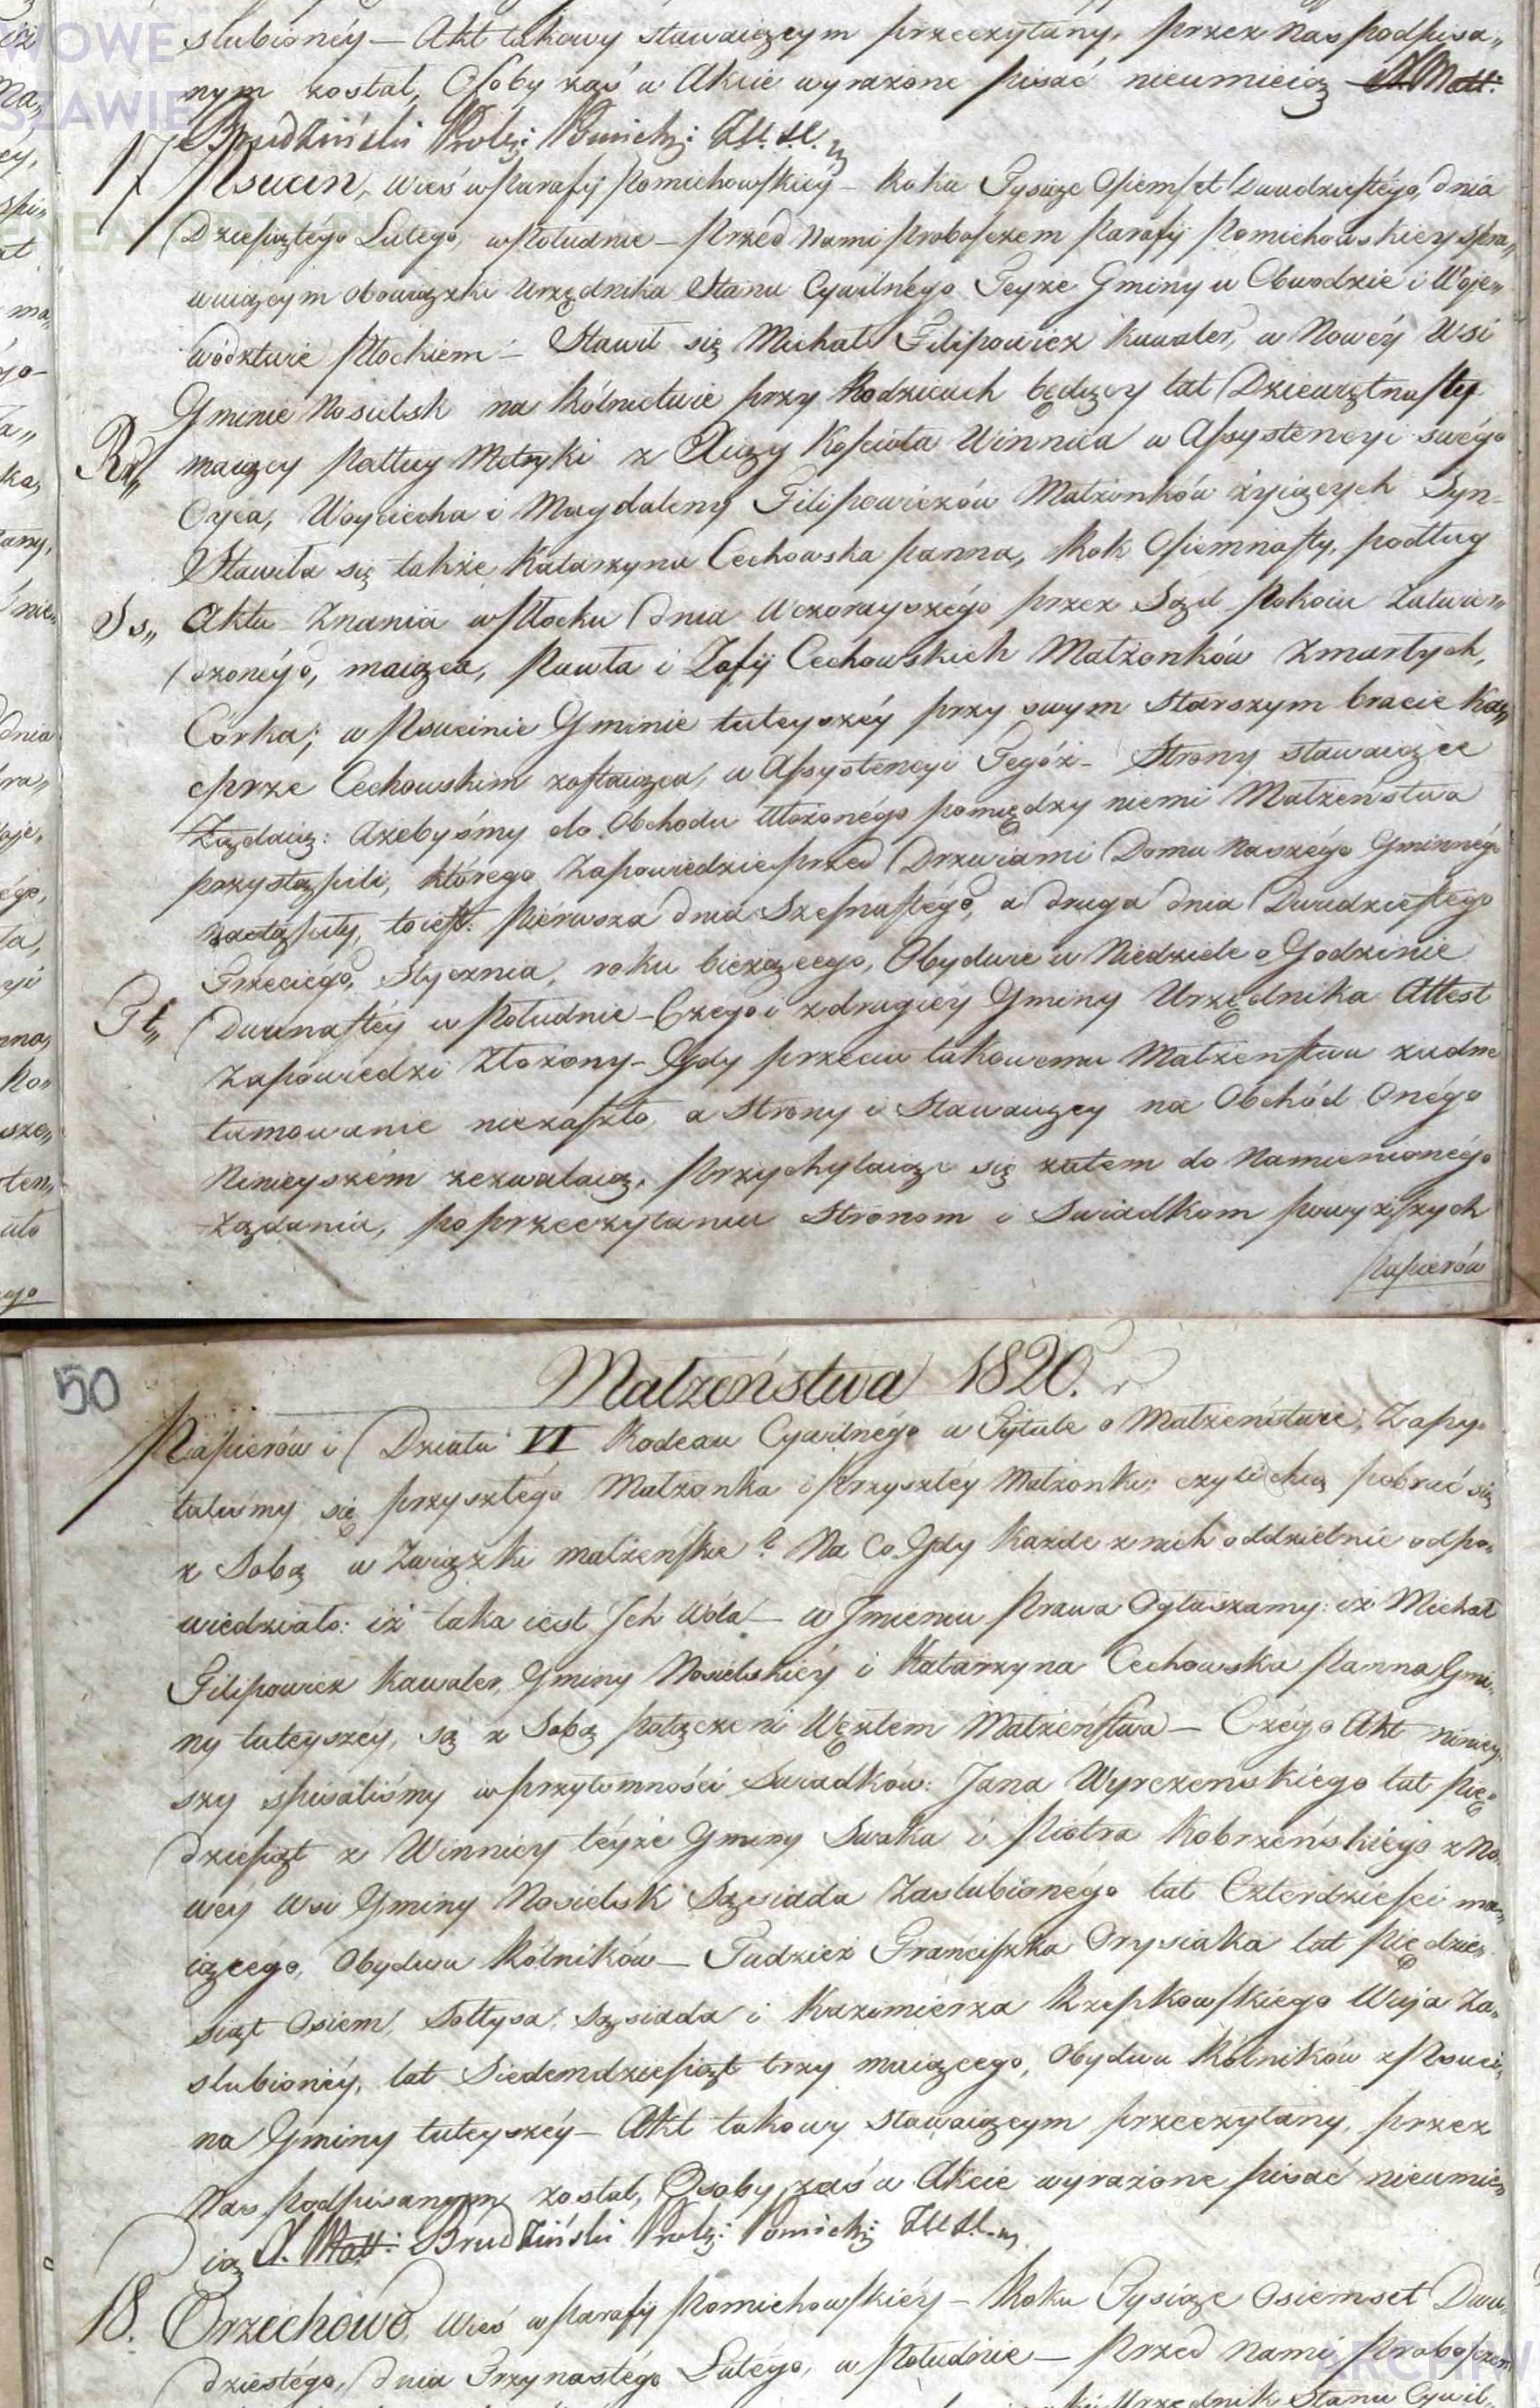 slubionéy — Akt takowy stawaiącym przeczytany, przez Nas podpisa„
nym został, Osoby zaś w Akcie wyrażone pisać nieumieią X. Matt:
Brudziński Prob: Pomich: U.S.C. m
17 Psucin, wieś w Parafij Pomichowskiéy — Roku Tysiące Osiemset Dwudziestégo, dnia
Dziesiątégo Lutego, w Południe — Przed Nami Proboszczem Parafij Pomichowskiéy Spra„
wuiącym obowiązki Urzędnika Stanu Cywilnégo Teyże Gminy w Obwodzie i Woje„
wództwie Płockiem — Stawił się Michał Filipowicz Kawaler, w Nowéy Wsi
Gminie Nosielsk na Rólnictwie przy Rodzicach będący lat Dziewiętnasty
maiący Podług Metryki z Xięgi Kościoła Winnica w Assystencyi swégo
Oyca, Woyciecha i Magdaleny Filipowiczów Małżonków żyiących Syn —
Stawiła się także Katarzyna Cechowska panna, Rok Osiemnasty, podług
Rz„
Aktu Znania w Płocku dnia Wczorayszégo przez Sąd Pokoiu Zatwier„
Ss„
dzonégo, maiąca, Pawła i Zofij Cechowskich Małżonków Zmarłych,
Córka; w Psucinie Gminie tuteyszéy przy swym starszym bracie Kac„
przze Cechowskim zostaiąca, w Assystencyi Tegóż — Strony stawaiące
Żądaią: Ażebyśmy do Obchodu Ułożonégo pomiędzy niemi Małżeństwa
przystąpili, którego Zapowiedzie przed Drzwiami Domu Naszégo Gminnégo
zastąpiły, toiest: pierwsza dnia Szesnastégo, a druga dnia Dwudziestego
Trzeciego, Stycznia, roku bieżącego, Obydwie w Niedziele o Godzinie
Dwunastéy w Południe — Czego i z drugiéy Gminy Urzędnika Attest
Zapowiedzi Złożony — Gdy przeciw takowemu Małżeństwu żadne
tamowanie niezaszło, a Strony i Stawaiący na Obchód Onégo
Ninieyszém zezwalaią, Przychylaiąc się zatem do Namienionégo
żądania, po przeczytaniu Stronom i Swiadkom powyższych
Papierów
50
Małżeństwa 1820. r
Papierów i Działu VI Kodexu Cywilnégo w Tytule o Małżeństwie, Zapy„
taliśmy się przyszłégo Małżonka i Przyszłéy Małżonki: czyli chcą pobrać się
z Sobą w Związki małżeńskie? Na Co Gdy Każde z nich oddzielnie odpo„
wiedziało: iż taka iest Ich Wola — w Imieniu Prawa Ogłaszamy: iż Michał
Filipowicz Kawaler, Gminy Nosielskiéy i Katarzyna Cechowska Panna Gmi„
ny tuteyszéy, są z Sobą połączeni Węzłem Małżeństwa — Czégo Akt niniey„
szy spisaliśmy w przytomności Swiadków: Jana Wyrczenskiégo lat pię„
dziesiąt z Winnicy téyże Gminy Swaka i Piotra Kobrzeńskiégo z No„
wéy Wsi Gminy Nosielsk Sąsiada Zaslubionégo lat Czterdzieści ma„
iącego, Obydwu Rólników — Tudzież Franciszka Orysiaka lat Piędzie„
siąt Osiem, Sołtysa, Sąsiada i Kazimierza Rzepkowskiégo Wuja Za„
slubionéy, lat Siedemdziesiąt trzy maiącego, Obydwu Rólników z Psuci„
na Gminy tuteyszéy — Akt takowy stawaiącym przeczytany, przez
Nas Podpisanym został, Osoby zaś w Akcie wyrażone pisać nieumie„
ią X. Matt: Brudziński Prob: Pomich: U.S.C. m
18. Orzechowo, wieś w Parafij Pomichowskiéy — Roku Tysiące Osiemset Dwu„
dziestégo, dnia Trzynastégo Lutégo, w Południe — Przed Nami Proboszczem
Urzędnik Stanu Cywil